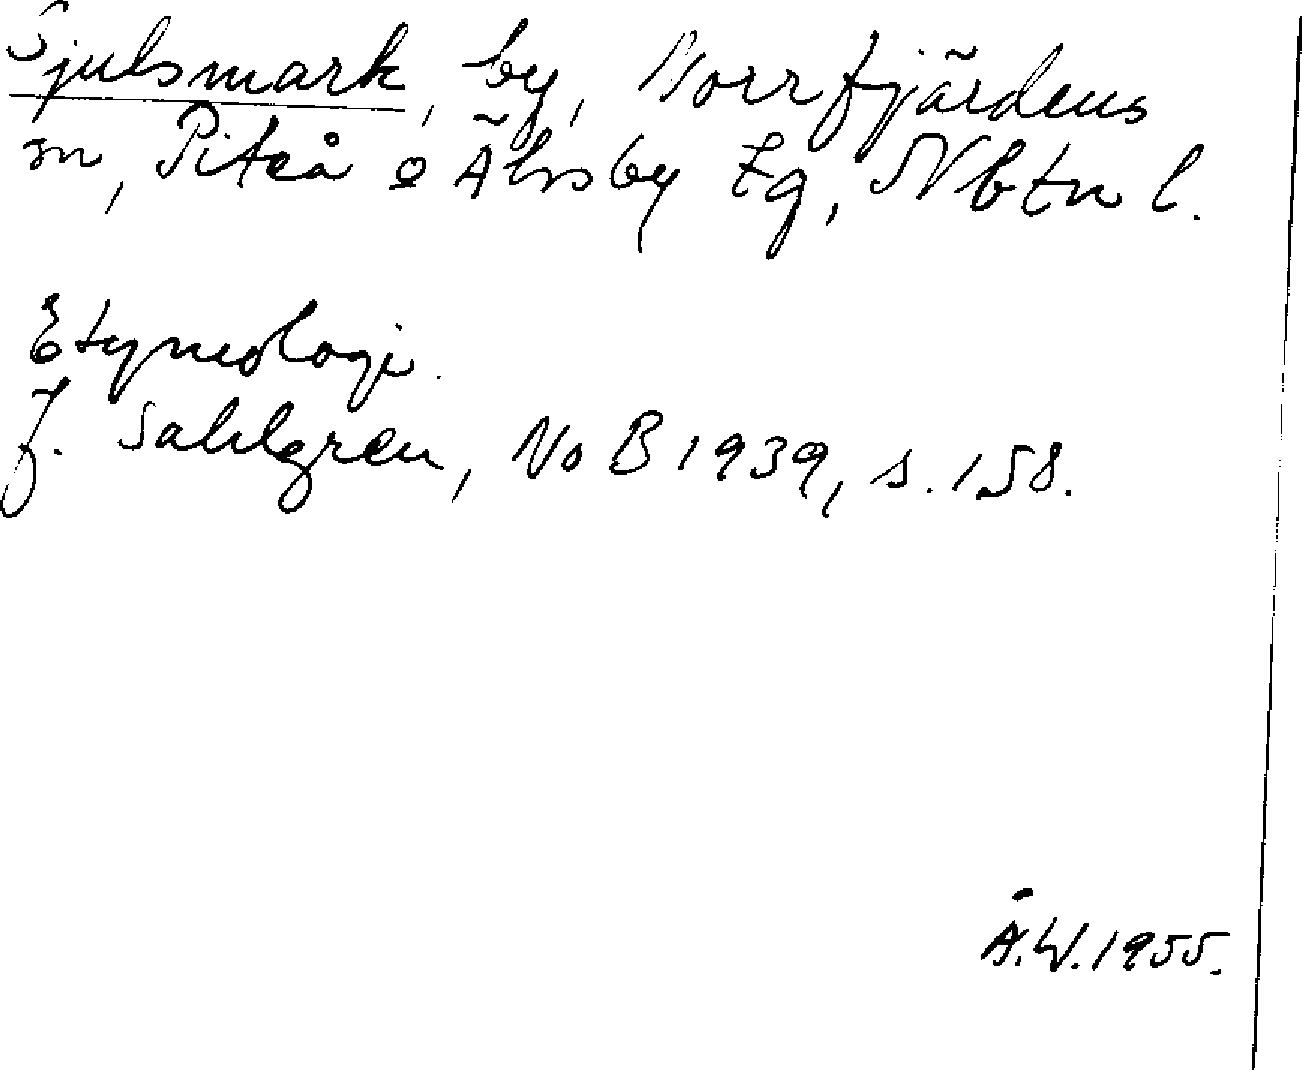 Sjulsmark, by, Norrfjärdens
sn, Piteå o Älvsby tg, Nbtn l.
Etymologi.
J. Sahlgren, NoB 1939, s. 158.
Å.W. 1955.